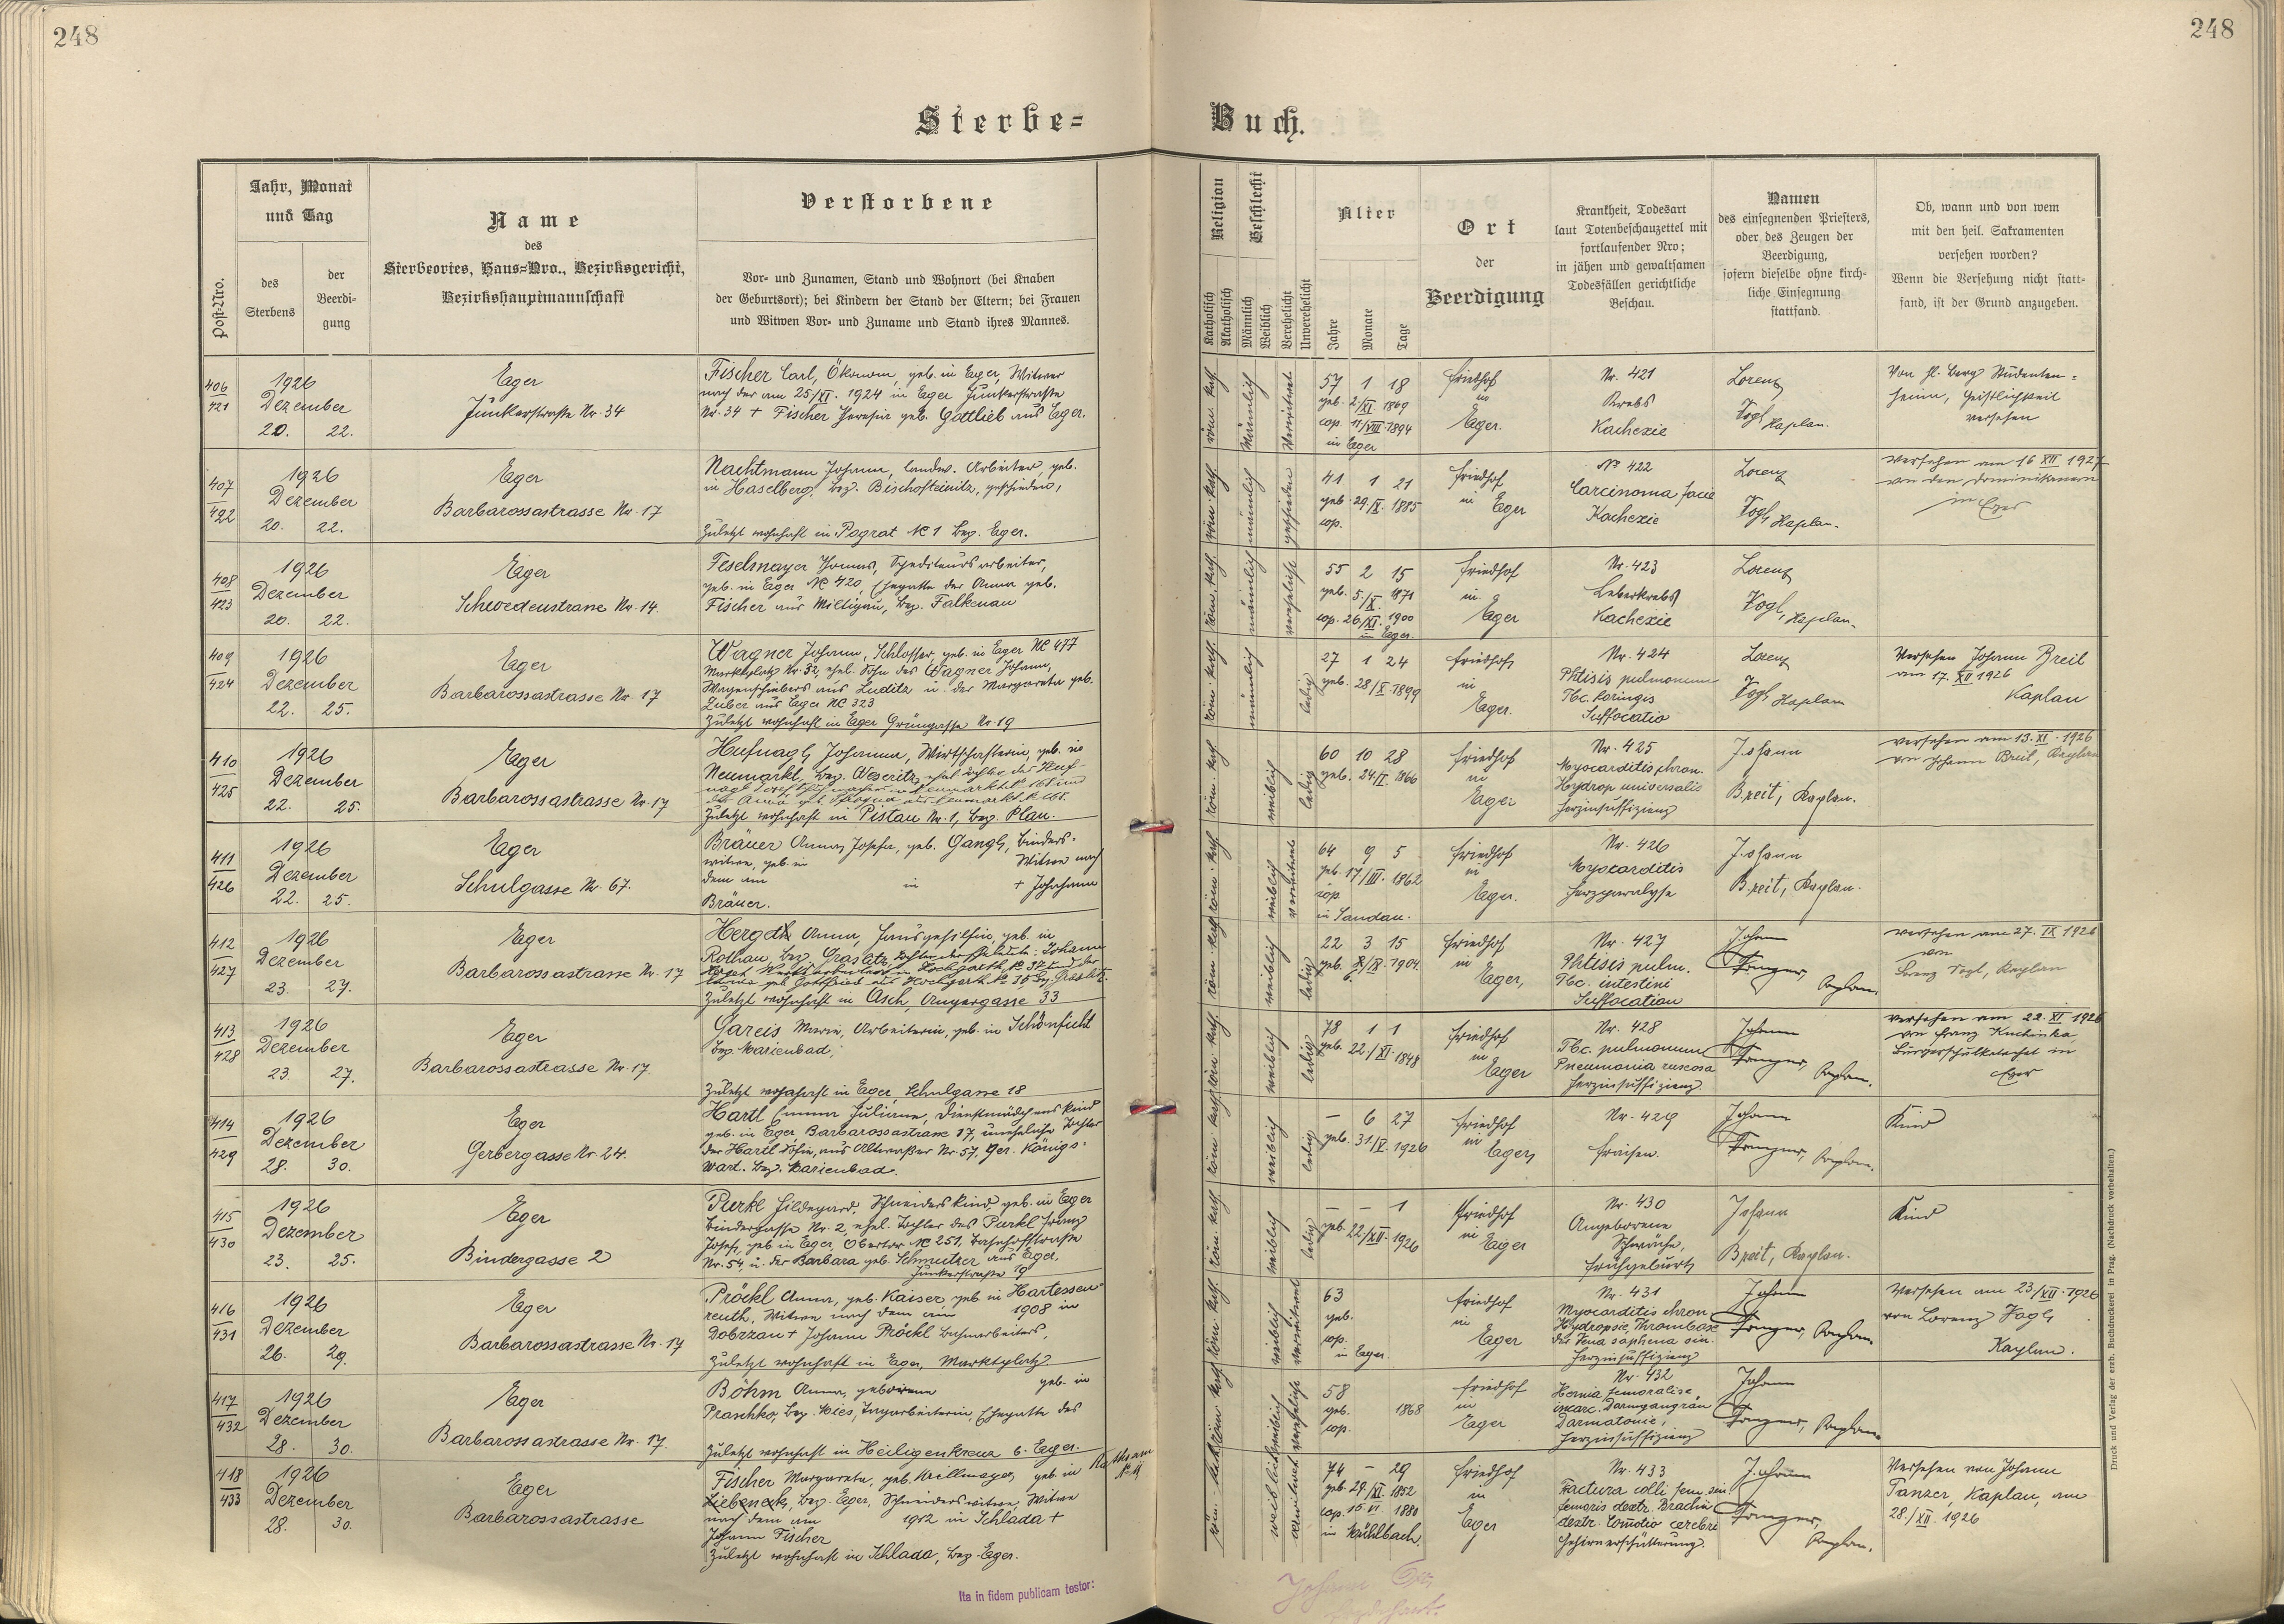 248
248
Sterbe=
Buch.
Post-Nro.
Jahr, Monat
und Tag
des
Sterbens
der
Beerdi-
gung
Name
des
Sterbeortes, Haus=Nro., Bezirksgericht,
Bezirkshauptmannschaft
Verstorbene
Vor- und Zunamen, Stand und Wohnort (bei Knaben
der Geburtsort); bei Kindern der Stand der Eltern; bei Frauen
und Witwen Vor- und Zuname und Stand ihres Mannes.
Religion
Katholisch
Akatholisch
Geschlecht
Männlich
Weiblich
Verehelicht
Unverehelicht
Alter
Jahre
Monate
Tage
Ort
der
Beerdigung
Krankheit, Todesart
laut Totenbeschauzettel mit
fortlaufender Nro;
in jähen und gewaltsamen
Todesfällen gerichtliche
Beschau.
Namen
des einsegnenden Priesters,
oder des Zeugen der
Beerdigung,
sofern dieselbe ohne kirch-
liche Einsegnung
stattfand.
Ob, wann und von wem
mit den heil. Sakramenten
versehen worden?
Wenn die Versehung nicht statt-
fand, ist der Grund anzugeben.
406
421
1926
Dezember
20. 22.
Eger
Junkerstraße Nr. 34
Fischer Carl, Ökonom, geb. in Eger, Witwer
nach der am 25/XI. 1924 in Eger Junkerstraße
Nr. 34 + Fischer Theresia geb. Gottlieb aus Eger.
röm. kath.
männlich
verwitwet
57 1 18
geb. 2/XI. 1869
cop. 11/VIII. 1894
in Eger
Friedhof
in
Eger.
Nr. 421
Krebs
Kachexie
Lorenz
Vogl, Kaplan.
Von hl. Berg Studenten=
heim, Geistlichkeit
versehen
407
422
1926
Dezember
20. 22.
Eger
Barbarossastrasse Nr. 17
Nachtmann Johann, landw. Arbeiter, geb.
in Haselberg, Bez. Bischofteinitz, geschieden,
Zuletzt wohnhaft in Pograt NC 1 Bez. Eger.
röm. kath.
männlich
geschieden
41 1 21
geb. 29./X. 1885
cop.
Friedhof
in Eger
No 422
Carcinoma facie
Kachexie
Lorenz
Vogl, Kaplan.
Versehen am 16 XII 1927
von den Dominikanern
in Eger
408
423
1926
Dezember
20. 22.
Eger
Schwedenstrasse Nr. 14.
Feselmayer Thomas, Spediteursarbeiter,
geb. in Eger NC 420, Ehegatte der Anna geb.
Fischer aus Miltigau, Bez. Falkenau
röm. kath.
männlich
verehelicht
55 2 15
geb. 5./X. 1871
cop. 26/XI. 1900
in Eger.
Friedhof
in
Eger
Nr. 423
Leberkrebs
Kachexie
Lorenz
Vogl, Kaplan.
409
424
1926
Dezember
22. 25.
Eger
Barbarossastrasse Nr. 17
Wagner Johann, Schlosser, geb. in Eger NC 477
Marktplatz Nr. 32, ehel. Sohn des Wagner Johann,
Wagenschiebers aus Luditz u. der Margareta geb.
Zuber aus Eger NC 323
Zuletzt wohnhaft in Eger Grüngasse Nr. 19
röm. kath.
männlich
ledig
27 1 24
geb. 28/X. 1899
Friedhof
in
Eger.
Nr. 424
Phtisis pulmonum
Tbc. laringis
Suffocatio
Lorenz
Vogl, Kaplan
Versehen Johann Breit
am 17. XII 1926
Kaplan
410
425
1926
Dezember
22. 25.
Eger
Barbarossastrasse Nr. 17
Hufnagl, Johanna, Wirtschafterin, geb. in
Neumarkt, Bez. Weseritz, ehel. Tochter des Huf-
Zuletzt wohnhaft in Pistau Nr. 1, Bez. Plan.
röm. kath.
weiblich
ledig
60 10 28
geb. 24./I. 1866
Friedhof
in
Eger
Nr. 425
Myocarditis chron.
Hydrop universalis
Herzinsuffizienz
Johann
Breit, Kaplan.
Versehen am 13. XI. 1926
von Johann Breit, Kaplan
411
426
1926
Dezember
22. 25.
Eger
Schulgasse Nr. 67.
Bräuer Anna, Josefa, geb. Gangl, Binders=
witwe, geb. in Witwe nach
dem am in + Johann
Bräuer.
röm. kath.
weiblich
verwitwet
64 9 5
geb. 17/III. 1862
cop.
in Sandau.
Friedhof
in
Eger.
Nr. 426
Myocarditis
Herzparalyse
Johann
Breit, Kaplan.
412
427
1926
Dezember
23. 27.
Eger
Barbarossastrasse Nr. 17
Herget Anna, Hausgehilfin, geb. in
Rothau, Bez. Graslitz,
Zuletzt wohnhaft in Asch, Angergasse 33
röm. kath.
weiblich
ledig
22 3 15
geb. 1904.
Friedhof
in
Eger,
Nr. 427
Phtisis pulm.
Tbc. intestini
Suffocation
Johann
Tanzer, Kaplan.
Versehen am 27. IX 1926
von
Lorenz Vogl, Kaplan
413
428
1926
Dezember
23. 27.
Eger
Barbarossastrasse Nr. 17.
Gareis Marie, Arbeiterin, geb. in Schönficht
Bez. Marienbad,
Zuletzt wohnhaft in Eger, Schulgasse 18
röm. kath.
weiblich
ledig
78 1 1
geb. 22./XI. 1848
Friedhof
in
Eger
Nr. 428
Tbc. pulmonum
Pneumonia
Herzinsuffizienz
Johann
Tanzer, Kaplan.
Versehen am 22. XI 1926
von Franz Kuchinka,
Bürgerschulkatechet in
Eger
414
429
1926
Dezember
28. 30.
Eger
Gerbergasse Nr. 24.
Hartl Emma Juliane, Dienstmädchens Kind
geb. in Eger Barbarossastrasse 17, uneheliche Tochter
der Hartl Sofia, aus Altwasser Nr. 57, Ger. Königs=
wart. Bez. Marienbad.
röm. kath.
weiblich
ledig
– 6 27
geb. 31/V. 1926
Friedhof
in
Eger,
Nr. 429
Fraisen.
Johann
Tanzer, Kaplan.
Kind
415
430
1926
Dezember
23. 25.
Eger
Bindergasse 2
Purkl Hildegard, Schneiders Kind, geb. in Eger
Bindergasse Nr. 2, ehel. Tochter des Purkl Franz
Josef, geb. in Eger, Obertor NC 251, Bahnhofstraße
Nr. 54, u. der Barbara geb. Schmutzer aus Eger,
Junkerstraße 19
röm. kath.
weiblich
ledig
– – 1
geb. 22/XII. 1926
Friedhof
in
Eger
Nr. 430
Angeborene
Schwäche,
Frühgeburt
Johann
Breit, Kaplan.
Kind
416
431
1926
Dezember
26. 29.
Eger
Barbarossastrasse Nr. 17
Pröckl Anna, geb. Kaiser, geb. in Hartessen=
reuth, Witwe nach dem am 1908 in
Dobrzan + Johann Pröckl Bahnarbeiters,
Zuletzt wohnhaft in Eger, Marktplatz
röm. kath.
weiblich
verwitwet
63
geb.
cop.
in Eger.
Friedhof
in
Eger
Nr. 431
Myocarditis chron.
Hydropsie, Thrombose
der Vena saphena sin.
Herzinsuffizienz
Johann
Tanzer, Kaplan.
Versehen am 23/XII. 1926
von Lorenz Vogl,
Kaplan.
417
432
1926
Dezember
28. 30.
Eger
Barbarossastrasse Nr. 17.
Böhm Anna, geborene geb. in
Praschko, Bez. Mies, Tagarbeiterin, Ehegatte des
Zuletzt wohnhaft in Heiligenkreuz b. Eger.
röm. kath.
weiblich
verehelicht
58
geb. 1868
cop.
Friedhof
in
Eger
Nr. 432
Hernia femoralise,
incarc. Darmgangrän
Darmatonie,
Herzinsuffizienz
Johann
Tanzer, Kaplan
418
433
1926
Dezember
28. 30.
Eger
Barbarossastrasse
Fischer Margareta, geb. Willmayer, geb. in
Liebeneck, Bez. Eger, Schneiderswitwe, Witwe
nach dem am 1912 in Schlada +
Johann Fischer
Zuletzt wohnhaft in Schlada, Bez. Eger.
röm. kath.
weiblich
verwitwet
74 – 29
geb. 29./XI. 1852
cop. 15 VI 1880
in Mühlbach.
Friedhof
in
Eger
Nr. 433
Fractura colli fem. sin.
femoris dextr. Brachii
dextr. Comotio cerebri
Gehirnerschütterung.
Johann
Tanzer,
Kaplan.
Versehen von Johann
Tanzer, Kaplan, am
28./XII. 1926
Ita in fidem publicam testor:
Johann
Druck und Verlag der erzb. Buchdruckerei in Prag. (Nachdruck vorbehalten.)